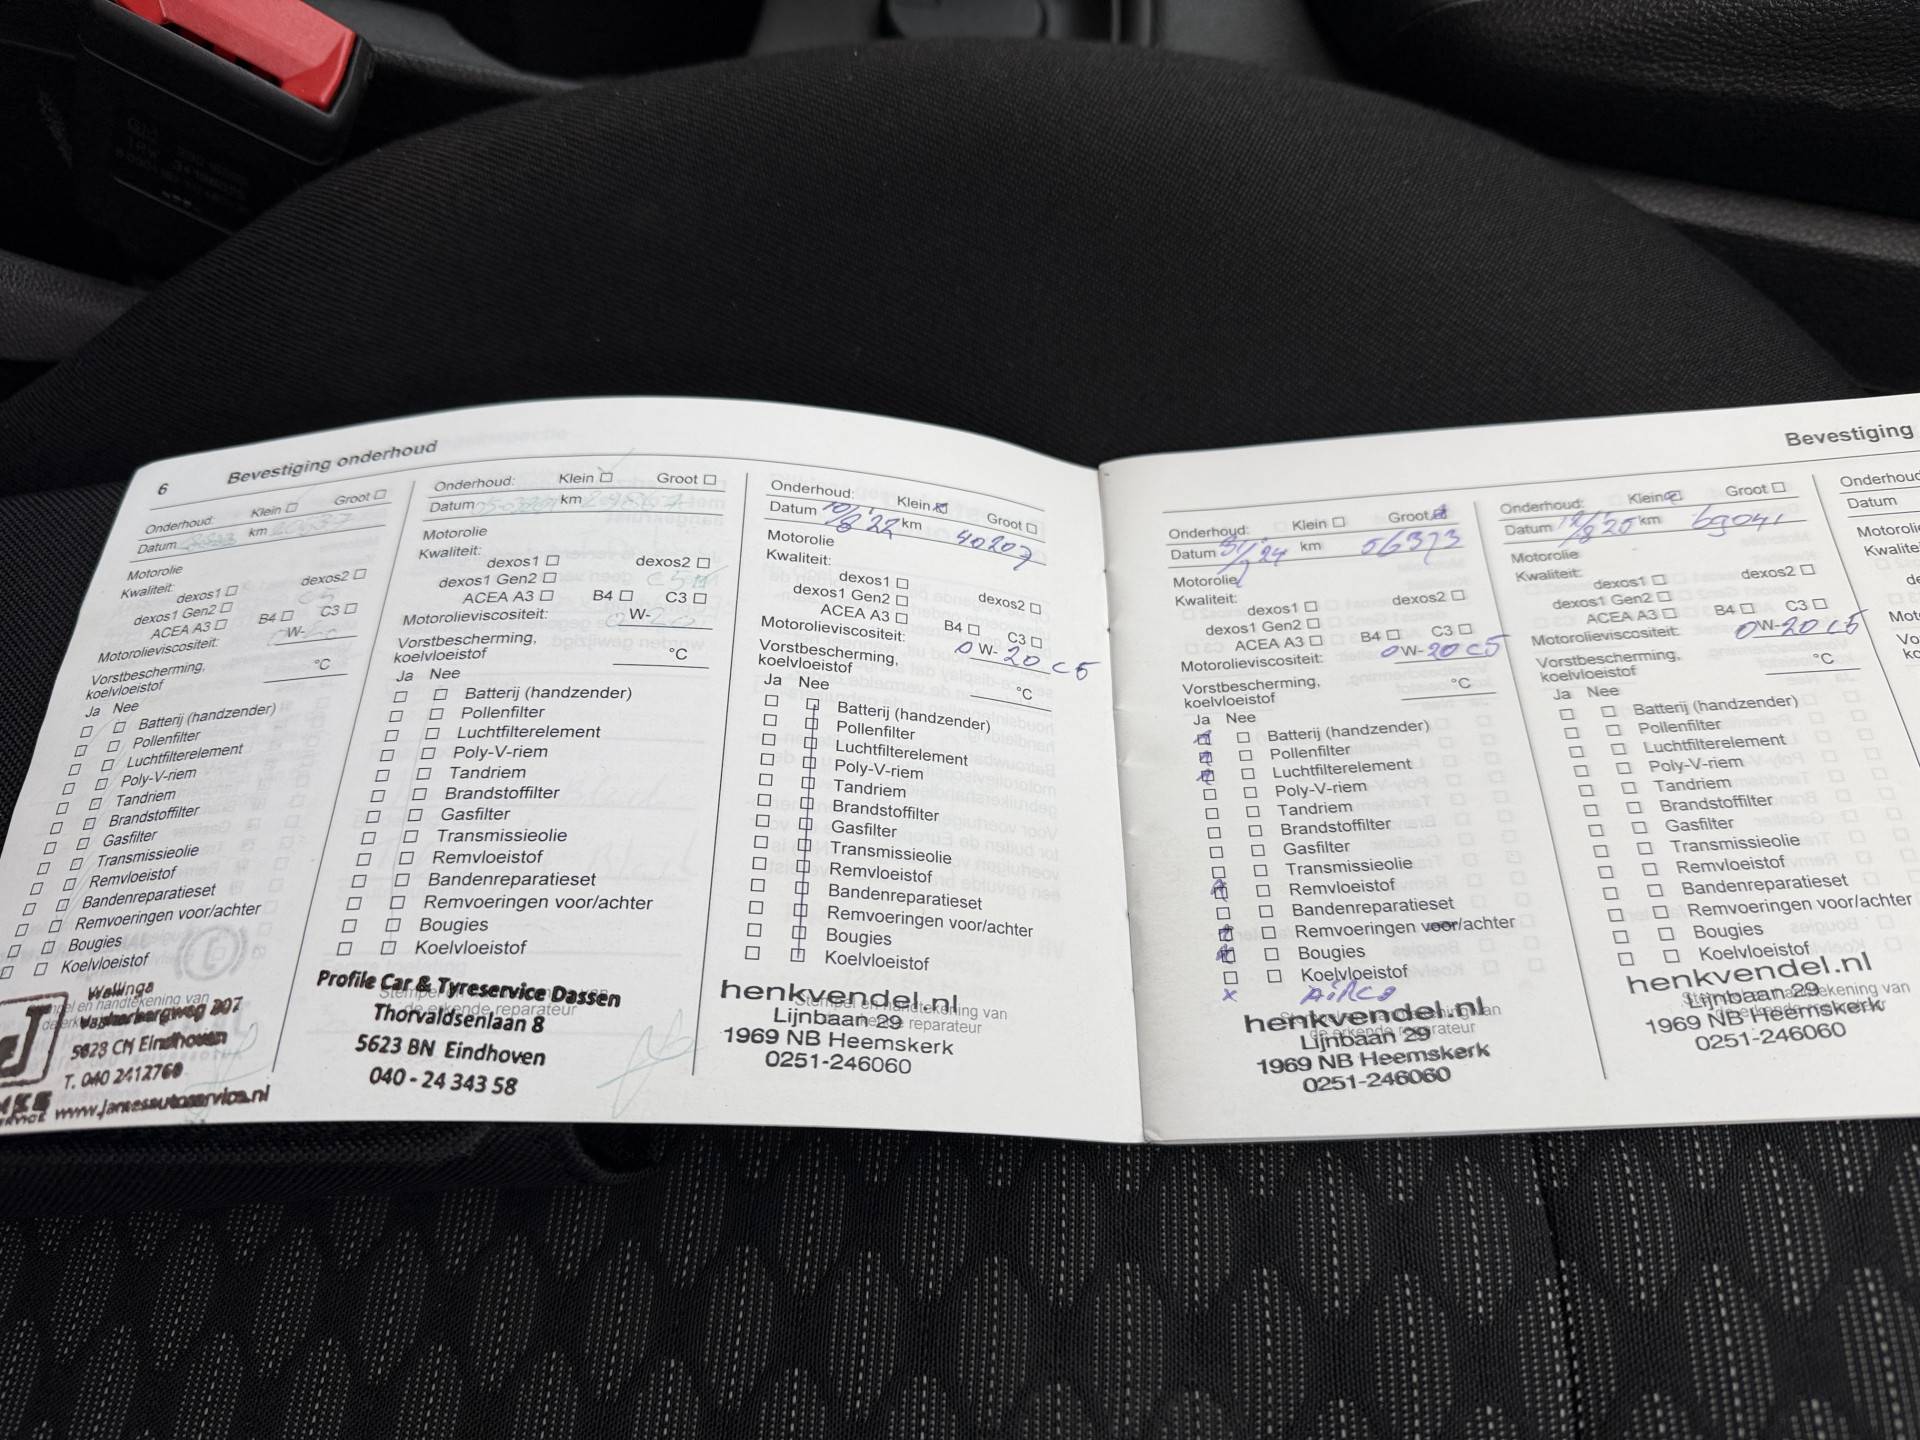 6 Bevestiging onderhoud
Onderhoud: Klein ☐ Groot ☐
Datum km
Motorolie
Kwaliteit:
dexos1 ☐ dexos2 ☐
dexos1 Gen2 ☐ C5
ACEA A3 ☐ B4 ☐ C3 ☐
Motorolieviscositeit: W-
Vorstbescherming,
koelvloeistof °C
Ja Nee
☐ ☐ Batterij (handzender)
☐ ☐ Pollenfilter
☐ ☐ Luchtfilterelement
☐ ☐ Poly-V-riem
☐ ☐ Tandriem
☐ ☐ Brandstoffilter
☐ ☐ Gasfilter
☐ ☐ Transmissieolie
☐ ☐ Remvloeistof
☐ ☐ Bandenreparatieset
☐ ☐ Remvoeringen voor/achter
☐ ☐ Bougies
☐ ☐ Koelvloeistof
5623 CM Eindhoven
T. 040 2412760
Onderhoud: Klein ☐ Groot ☐
Datum km
Motorolie
Kwaliteit:
dexos1 ☐ dexos2 ☐
dexos1 Gen2 ☐ C5
ACEA A3 ☐ B4 ☐ C3 ☐
Motorolieviscositeit: 0W-20
Vorstbescherming,
koelvloeistof °C
Ja Nee
☐ ☐ Batterij (handzender)
☐ ☐ Pollenfilter
☐ ☐ Luchtfilterelement
☐ ☐ Poly-V-riem
☐ ☐ Tandriem
☐ ☐ Brandstoffilter
☐ ☐ Gasfilter
☐ ☐ Transmissieolie
☐ ☐ Remvloeistof
☐ ☐ Bandenreparatieset
☐ ☐ Remvoeringen voor/achter
☐ ☐ Bougies
☐ ☐ Koelvloeistof
Profile Car & Tyreservice Dassen
Thorvaldsenlaan 8
5623 BN Eindhoven
040 - 24 343 58
Onderhoud: Klein ☒ Groot ☐
Datum 10/8 '22 km 40207
Motorolie
Kwaliteit:
dexos1 ☐ dexos2 ☐
dexos1 Gen2 ☐
ACEA A3 ☐ B4 ☐ C3 ☐
Motorolieviscositeit: 0W-20 C5
Vorstbescherming,
koelvloeistof °C
Ja Nee
☐ ☐ Batterij (handzender)
☐ ☐ Pollenfilter
☐ ☐ Luchtfilterelement
☐ ☐ Poly-V-riem
☐ ☐ Tandriem
☐ ☐ Brandstoffilter
☐ ☐ Gasfilter
☐ ☐ Transmissieolie
☐ ☐ Remvloeistof
☐ ☐ Bandenreparatieset
☐ ☐ Remvoeringen voor/achter
☐ ☐ Bougies
☐ ☐ Koelvloeistof
Stempel en handtekening van
de erkende reparateur
henkvendel.nl
Lijnbaan 29
1969 NB Heemskerk
0251-246060
Bevestiging
Onderhoud: Klein ☐ Groot ☒
Datum km 56373
Motorolie
Kwaliteit:
dexos1 ☐ dexos2 ☐
dexos1 Gen2 ☐
ACEA A3 ☐ B4 ☐ C3 ☐
Motorolieviscositeit: 0W-20 C5
Vorstbescherming,
koelvloeistof °C
Ja Nee
☒ ☐ Batterij (handzender)
☒ ☐ Pollenfilter
☒ ☐ Luchtfilterelement
☐ ☐ Poly-V-riem
☐ ☐ Tandriem
☐ ☐ Brandstoffilter
☐ ☐ Gasfilter
☐ ☐ Transmissieolie
☒ ☐ Remvloeistof
☐ ☐ Bandenreparatieset
☒ ☐ Remvoeringen voor/achter
☒ ☐ Bougies
☐ ☐ Koelvloeistof
x AIRCO
Stempel en handtekening van
de erkende reparateur
henkvendel.nl
Lijnbaan 29
1969 NB Heemskerk
0251-246060
Onderhoud: Klein ☒ Groot ☐
Datum km 69041
Motorolie
Kwaliteit:
dexos1 ☐ dexos2 ☐
dexos1 Gen2 ☐
ACEA A3 ☐ B4 ☐ C3 ☐
Motorolieviscositeit: 0W-20 C5
Vorstbescherming,
koelvloeistof °C
Ja Nee
☐ ☐ Batterij (handzender)
☐ ☐ Pollenfilter
☐ ☐ Luchtfilterelement
☐ ☐ Poly-V-riem
☐ ☐ Tandriem
☐ ☐ Brandstoffilter
☐ ☐ Gasfilter
☐ ☐ Transmissieolie
☐ ☐ Remvloeistof
☐ ☐ Bandenreparatieset
☐ ☐ Remvoeringen voor/achter
☐ ☐ Bougies
☐ ☐ Koelvloeistof
henkvendel.nl
Lijnbaan 29
1969 NB Heemskerk
0251-246060
Onderhoud:
Datum